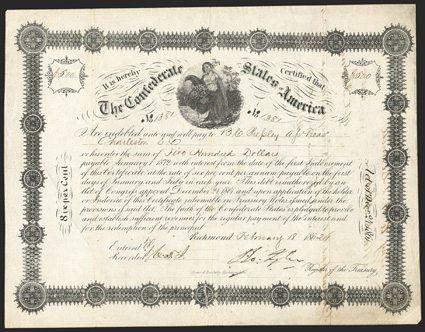 $500 $500
It is hereby Certified that
The Confederate States of America
No 1351 No 1351
are indebted and will pay to
Charleston S.C.
or his order the sum of Five Hundred Dollars
payable January 1st with interest from the date of the first Indorsement
of this Certificate at the rate of six per cent per annum payable on the first
days of January and July in each year. This debt is authorized by an
Act of Congress approved December 24 1861 and upon application of the holder
or Indorsee of this Certificate redeemable in Treasury Notes issued under the
provisions of said Act. The faith of the Confederate States is pledged to provide
and establish sufficient revenues for the regular payment of the interest and
for the redemption of the principal.
Richmond February 18 1862
Entered
Recorded
Register of the Treasury
Six per Cent